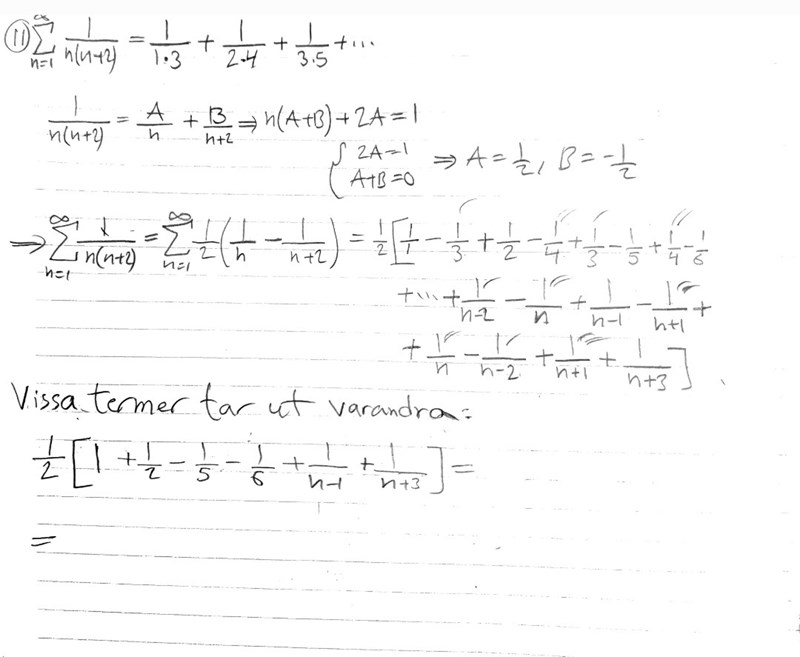 ⑪ ∑_{n=1}^{∞} 1/(n(n+2)) = 1/(1·3) + 1/(2·4) + 1/(3·5) + ...
1/(n(n+2)) = A/n + B/(n+2) ⇒ n(A+B) + 2A = 1
{ 2A=1
A+B=0 ⇒ A = 1/2, B = -1/2
⇒ ∑_{n=1}^{∞} 1/(n(n+2)) = ∑_{n=1}^{∞} 1/2 (1/n - 1/(n+2)) = 1/2 [1/1 - 1/3 + 1/2 - 1/4 + 1/3 - 1/5 + 1/4 - 1/6
+ ... + 1/(n-2) - 1/n + 1/(n-1) - 1/(n+1) +
+ 1/n - 1/(n-2) + 1/(n+1) + 1/(n+3) ]
Vissa termer tar ut varandra:
1/2 [1 + 1/2 - 1/5 - 1/6 + 1/(n-1) + 1/(n+3)] =
=